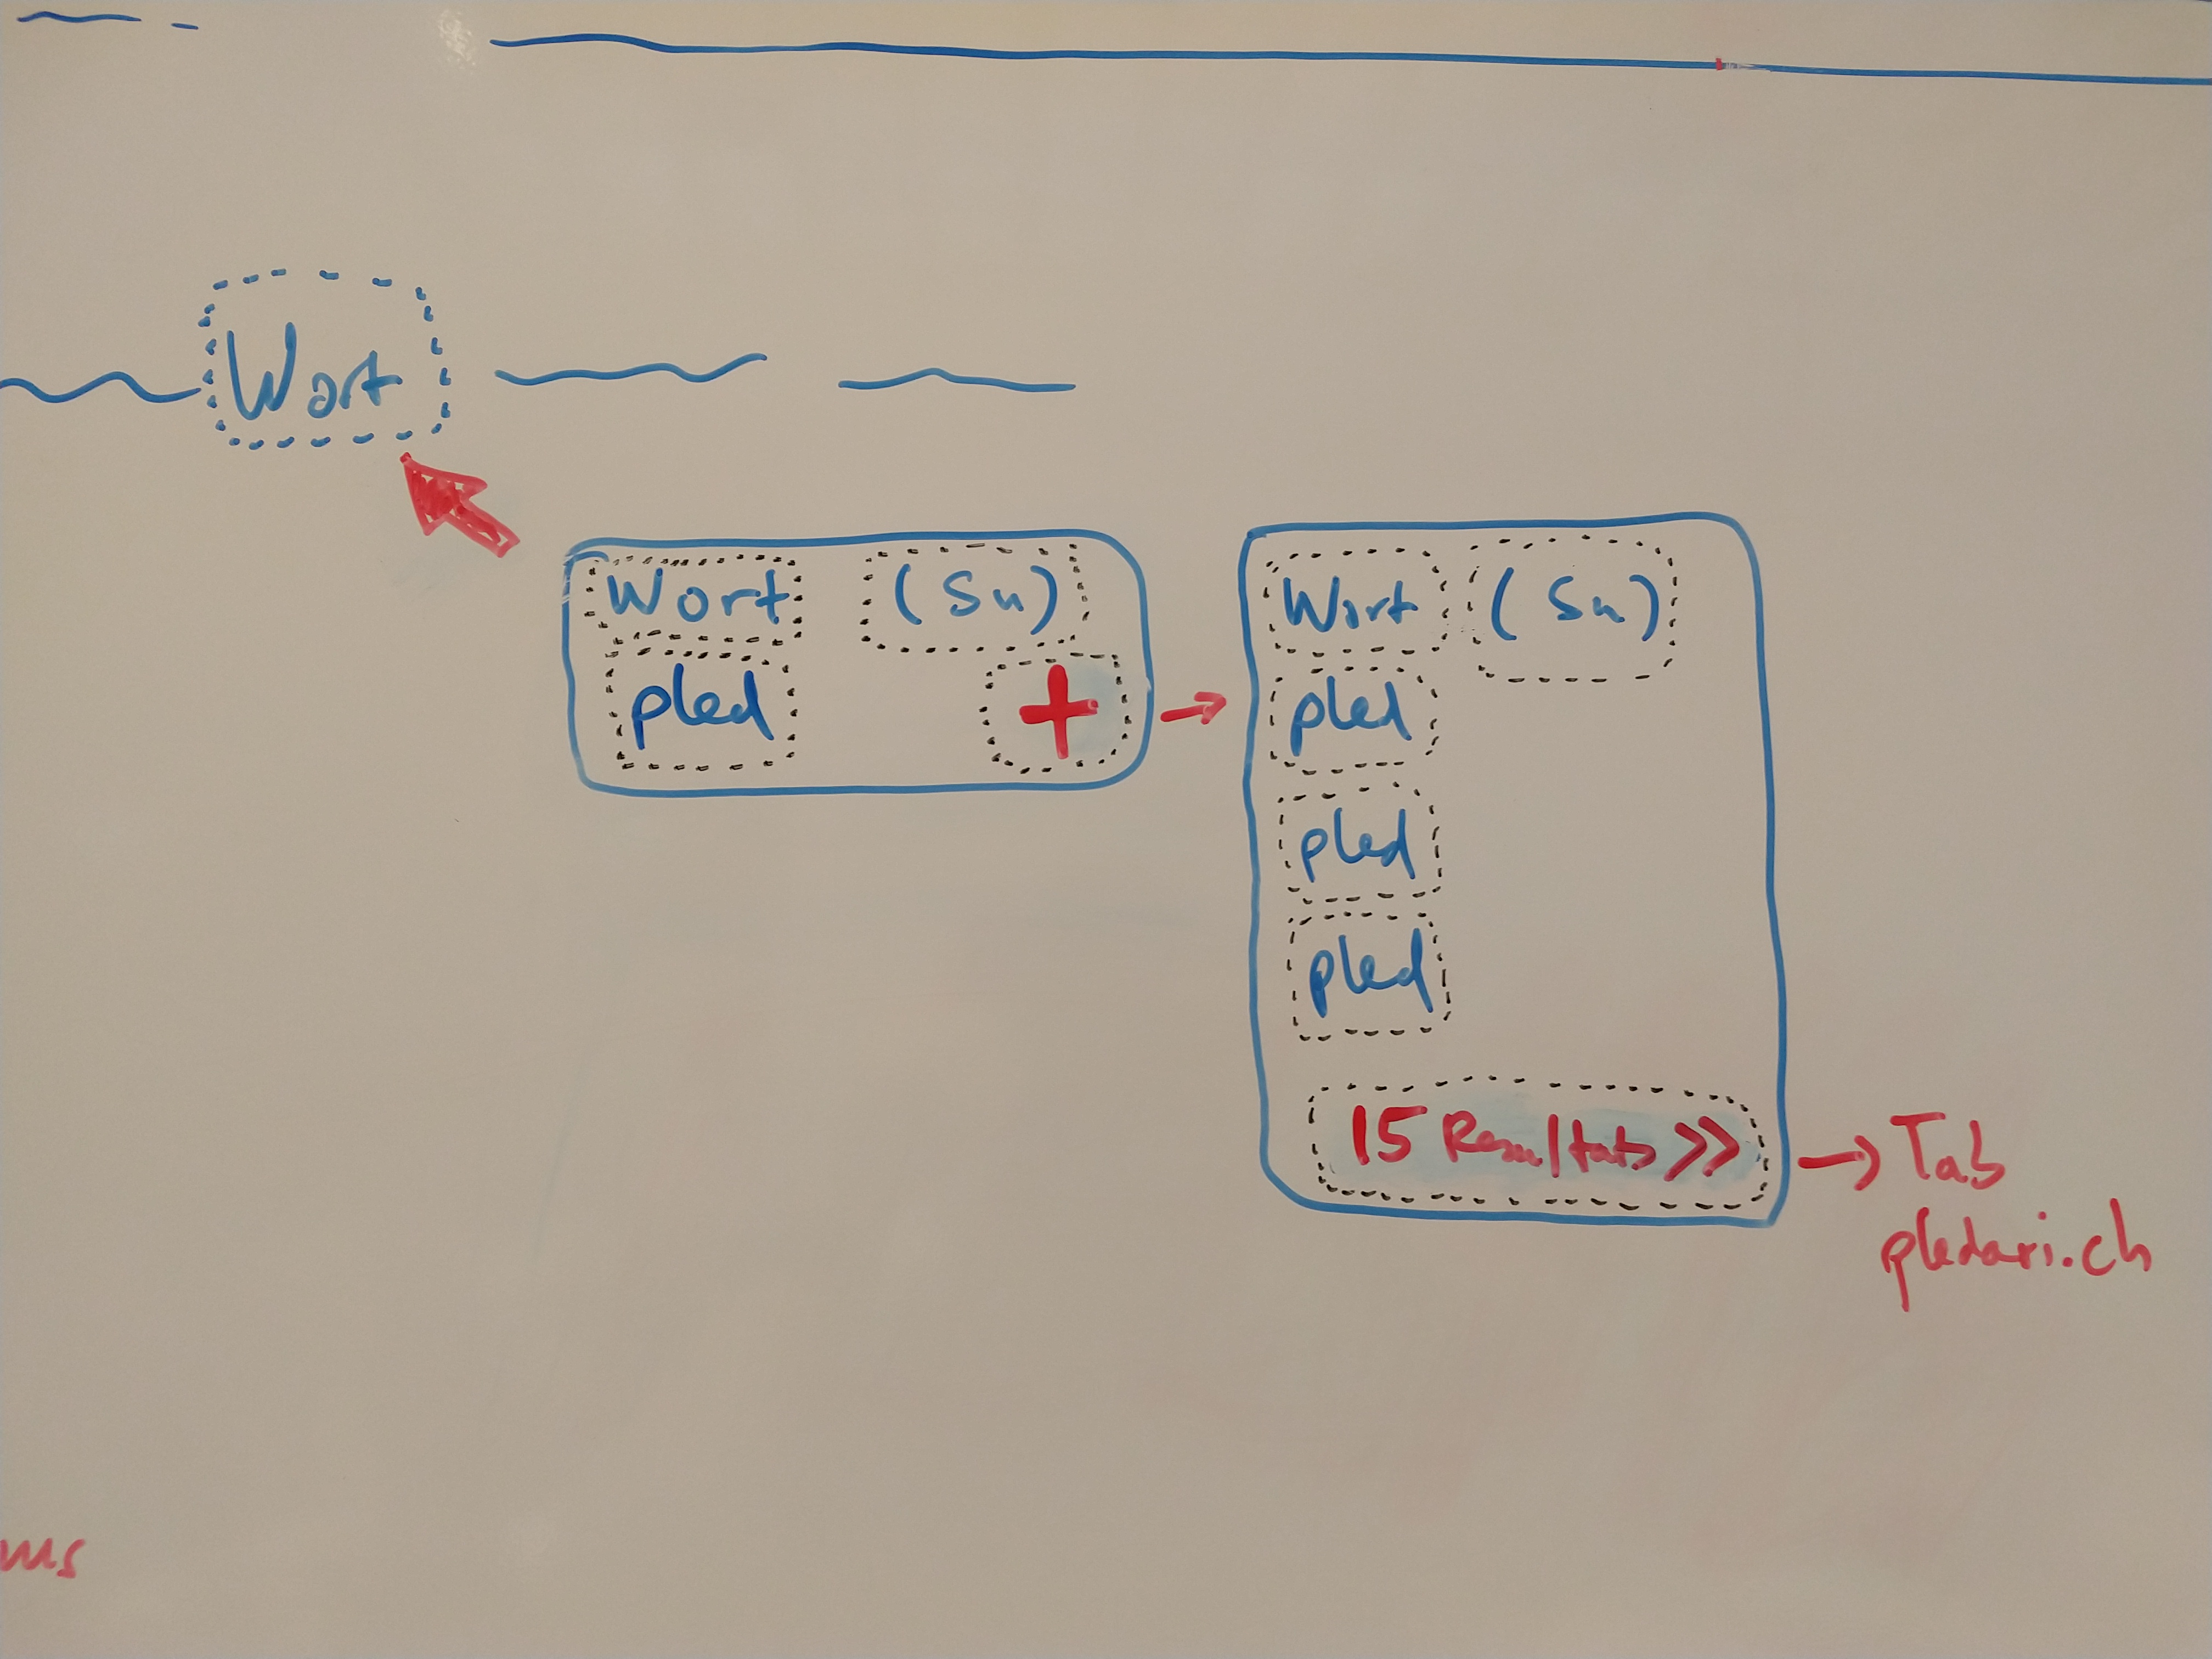 Wort
Wort (Sn)
pled +
Wort (Sn)
pled
pled
pled
15 Resultats >>
→ Tab
pledari.ch
ms